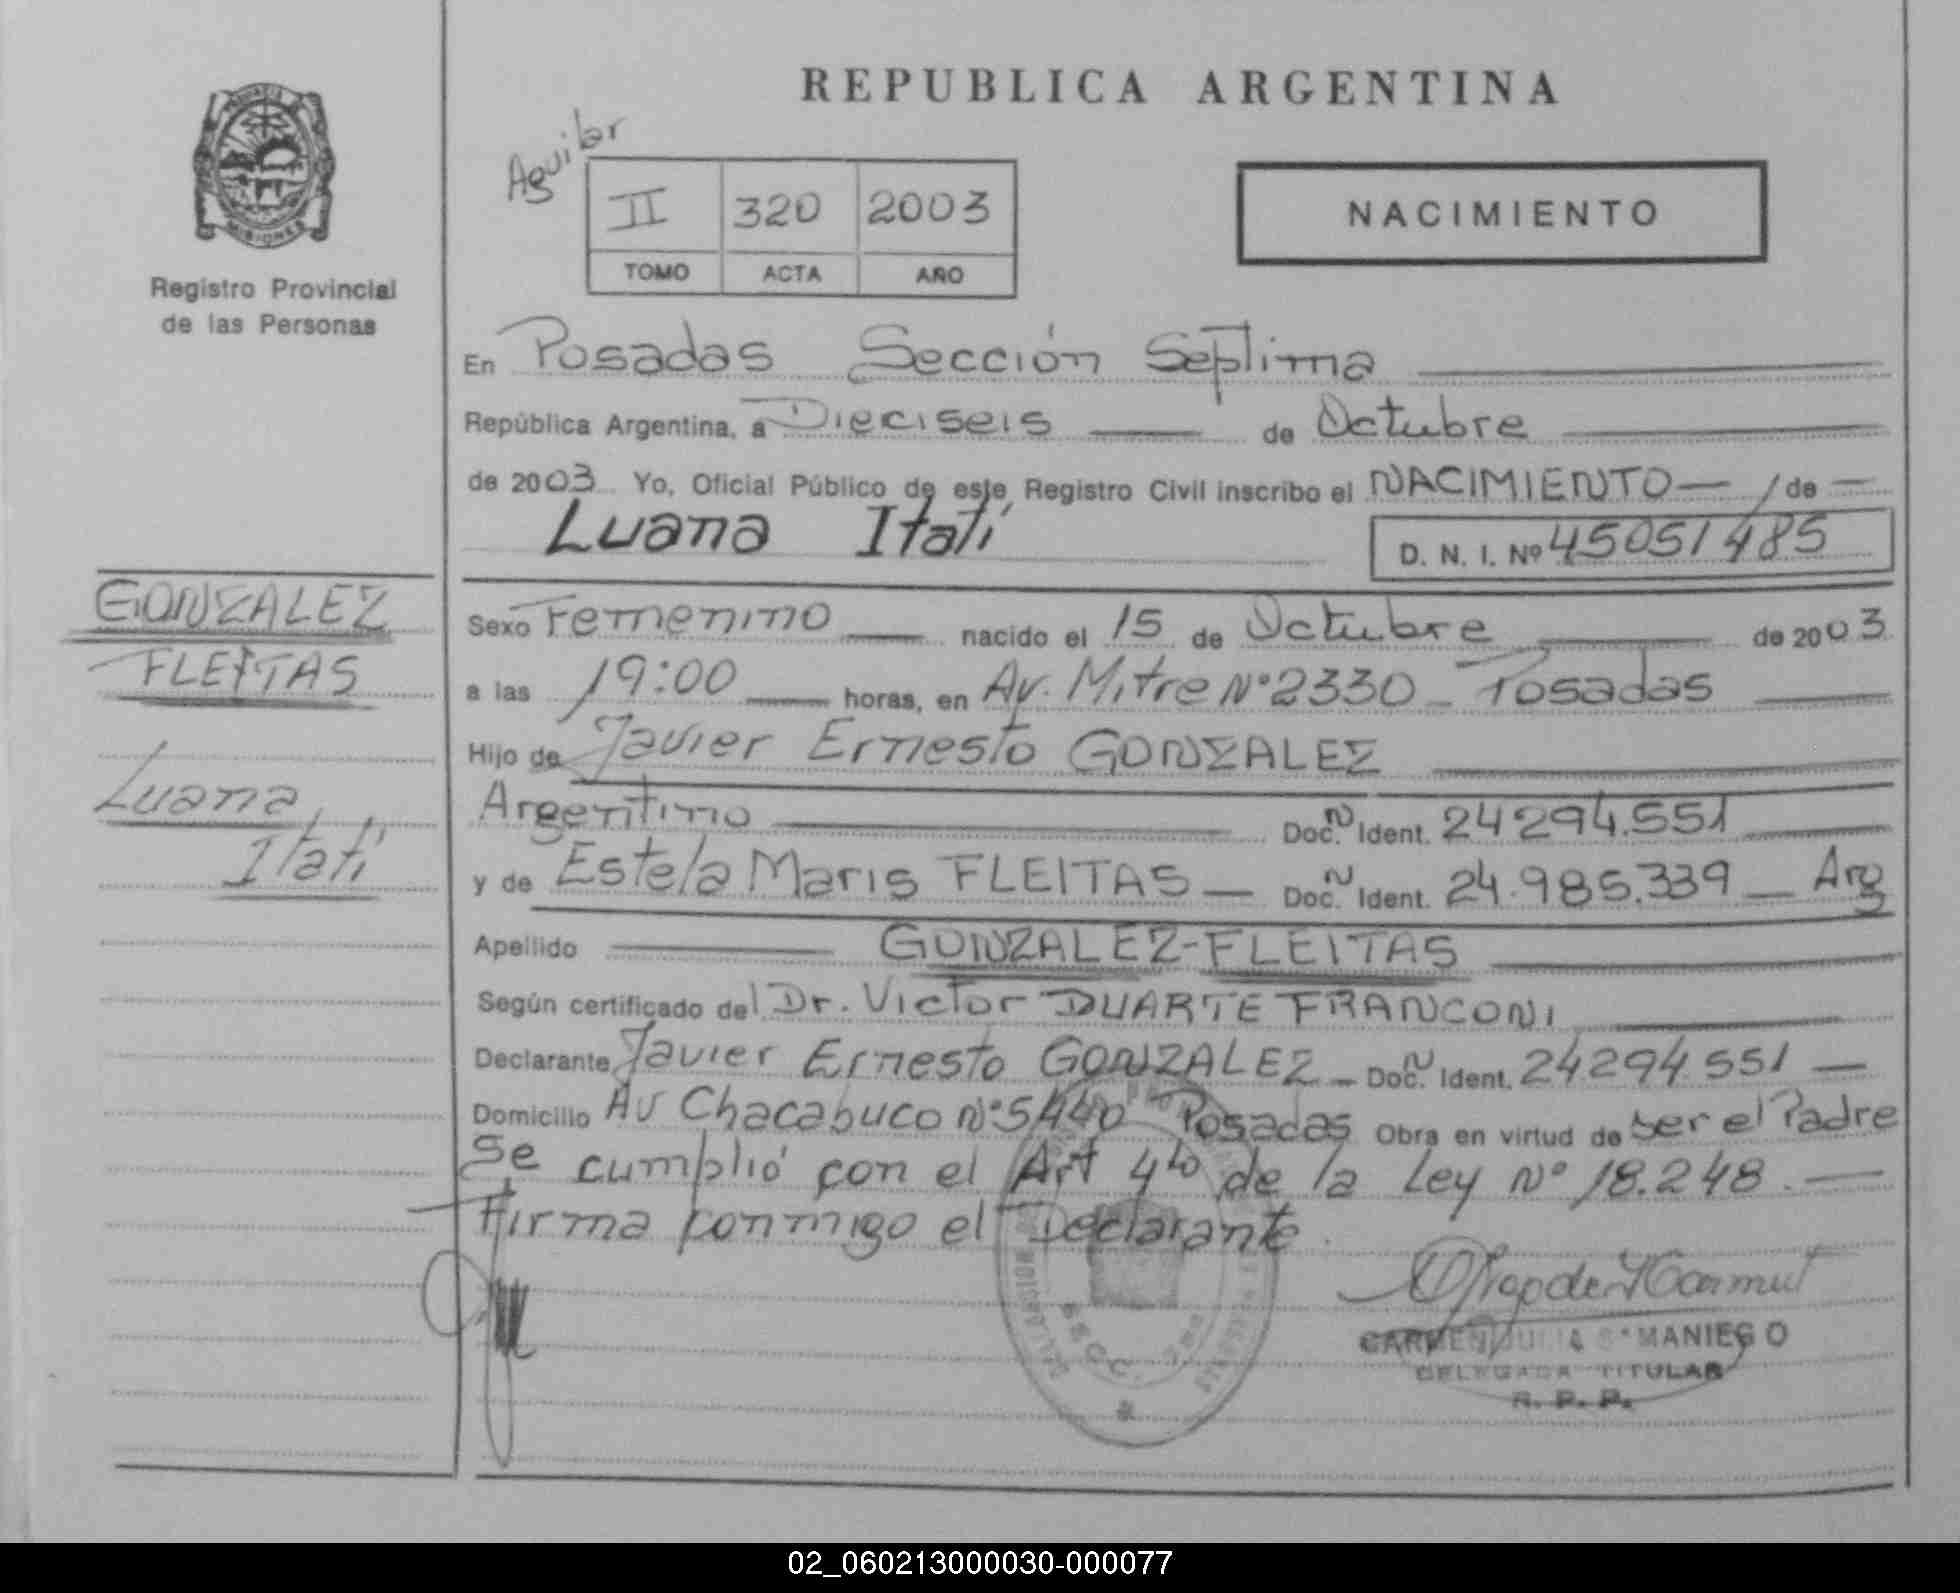 REPUBLICA ARGENTINA
Aguilar
II 320 2003
TOMO ACTA AÑO
NACIMIENTO
MISIONES
Registro Provincial
de las Personas
En Posadas Sección Septima
República Argentina, a Dieciseis de Octubre
de 2003 Yo, Oficial Público de este Registro Civil inscribo el NACIMIENTO / de
Luana Itatí
D. N. I. Nº 45051485
GONZALEZ
FLEITAS
Luana
Itatí
Sexo Femenino nacido el 15 de Octubre de 2003
a las 19:00 horas, en Av. Mitre Nº 2330 - Posadas
Hijo de Javier Ernesto GONZALEZ
Argentino Doc. N Ident. 24294.551
y de Estela Maris FLEITAS - Doc. N Ident. 24.985.339 - Arg
Apellido GONZALEZ-FLEITAS
Según certificado del Dr. Victor DUARTE FRANCONI
Declarante Javier Ernesto GONZALEZ - Doc. N Ident. 24294.551 -
Domicilio Av Chacabuco Nº 5440 Posadas Obra en virtud de Ser el Padre
Se cumplió con el Art 4to de la Ley Nº 18.248. -
Firma conmigo el Declarante.
CARMEN JULIA MANIEGO
DELEGADA TITULAR
R. P. P.
02_060213000030-000077